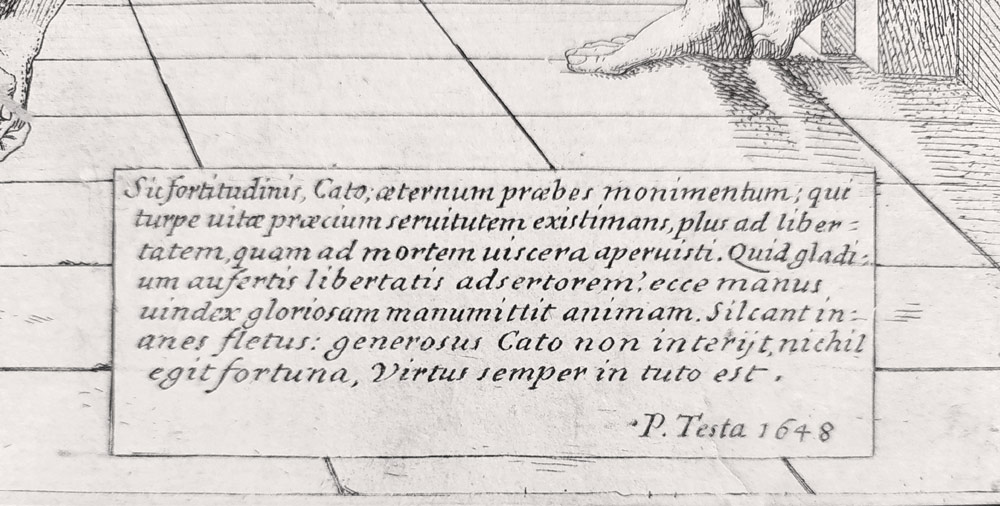 Sic fortitudinis, Cato, æternum præbes monimentum; qui
turpe uitæ præcium seruitutem existimans, plus ad liber-
tatem, quam ad mortem uiscera aperuisti. Quid gladi-
um aufertis libertatis adsertorem? ecce manus
uindex gloriosam manumittit animam. Sileant in-
anes fletus: generosus Cato non interijt, nichil
egit fortuna, Virtus semper in tuto est.
P. Testa 1648